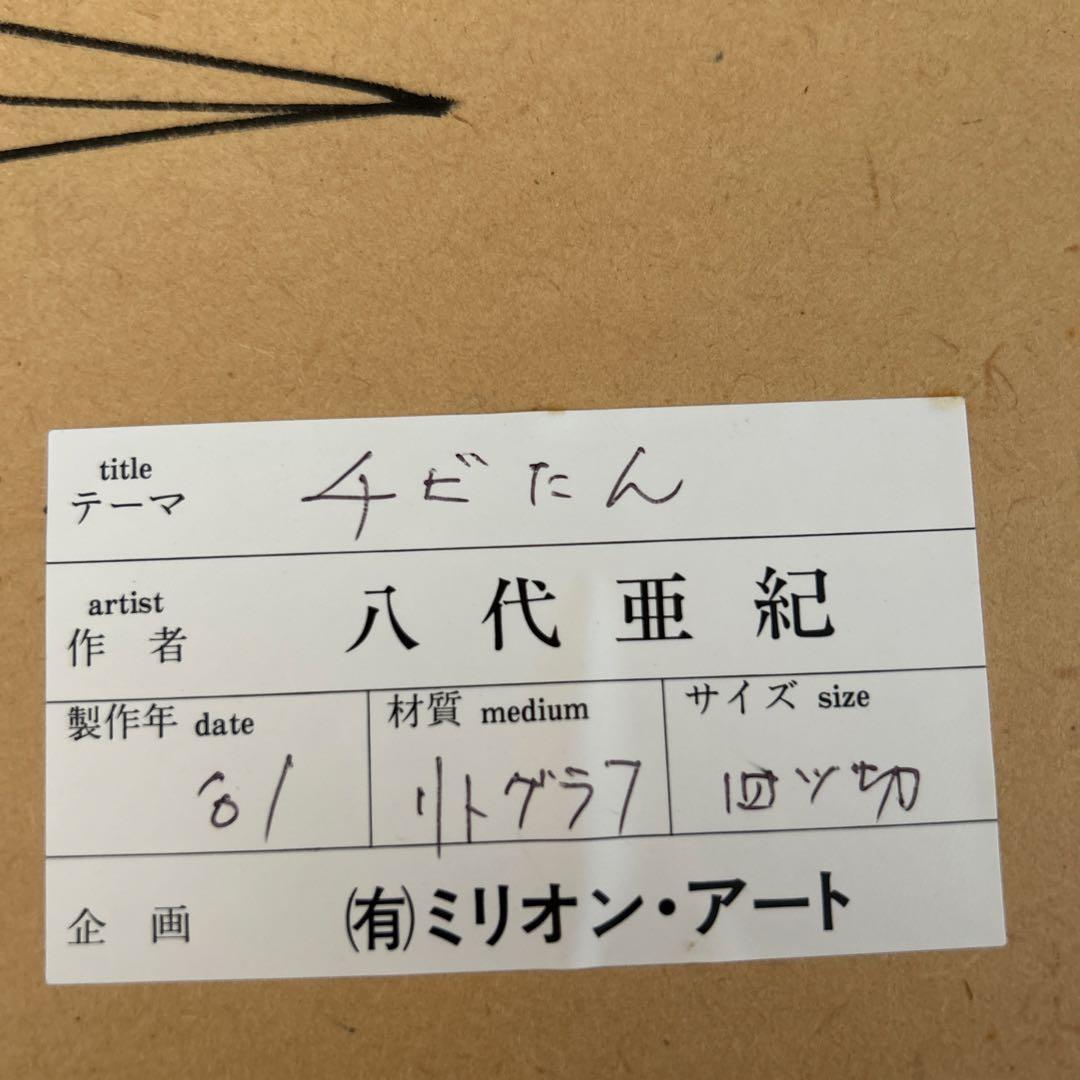 title
テーマ チビたん
artist
作者 八代亜紀
製作年 date 材質 medium サイズ size
リトグラフ 四ツ切
企画 (有)ミリオン・アート